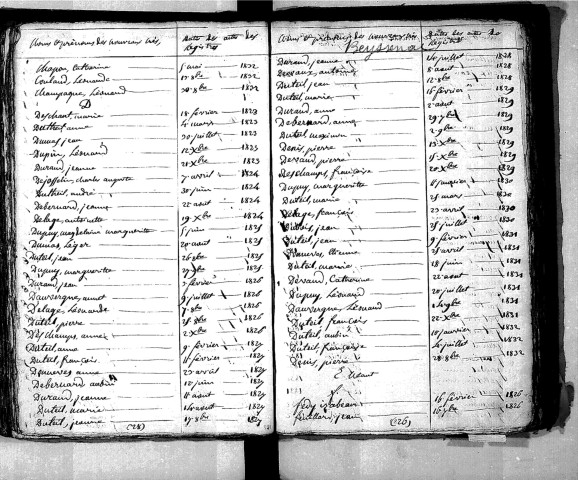 Noms et prénoms des nouveaux nés, Dates des actes des Registres
Chapou, Catherine 5 mai 1832
Coulaud, Léonarde 17 8bre 1832
Champagne, Léonard 30 8bre 1832
D
Deschamp, marie 18 février 1823
Dutheil, anne 4 mars 1823
Dumas, jean 30 juillet 1823
Dupuy, Léonard 12 Xbre 1823
Durand, jeanne 21 Xbre 1823
Dejosselin, charles auguste 7 avril 1824
Dutheil, andré 30 juin 1824
Debernard, jeanne 22 août 1824
Delage, antoinette 19 Xbre 1824
Dupuy, magdelaine marguerite 5 juin 1825
Dumas, Léger 20 août 1825
Duteil, jean 26 8bre 1825
Dupuy, marguerite 27 9bre 1825
Durand, jean février 1826
Dauvergne, annet 9 juillet 1826
Delage, Léonarde 8bre 1826
Duteil, pierre 25 8bre 1826
Deschamps, anne 2 Xbre 1826
Duteil, anne 9 février 1827
Duteil, françois 11 février 1827
anne 23 avril 1827
Debernard, aubin 12 juin 1827
Durand, jeanne 11 août 1827
Duteil, marie 14 août 1827
Duteil, jeanne 17 8bre 1827
(25)
Noms et prénoms des nouveaux nés Dates des actes des Registres
Beyssenac
Durand, jeanne juillet 1828
antoine 8 août 1828
Duteil, jean 12 8bre 1828
Duteil, marie 16 février 1829
Durand, anne 2 août 1829
Debernard, anne 29 7bre 1829
Duteil, 2 9bre 1829
Denis, pierre 13 Xbre 1829
Devaud, pierre 15 Xbre 1829
Deschamps, françoise 20 Xbre 1829
Dupuy, marguerite 1830
Duteil, marie 25 mars 1830
Delage, françois 23 avril 1830
jean 25 juillet 1830
Duteil, jean 9 février 1831
Etienne 25 avril 1831
Duteil, marie 18 juin 1831
Devaud, Catherine 22 août 1831
Dupuy, Léonard 20 juillet 1831
Dauvergne, Léonard 9bre 1831
Duteil, françois 22 Xbre 1831
Duteil, aubin 10 janvier 1832
Duteil, françoise 10 juillet 1832
Denis, pierre 28 8bre 1832
E Néant
F
isabeau 16 février 1826
jean 16 9bre 1826
(26)